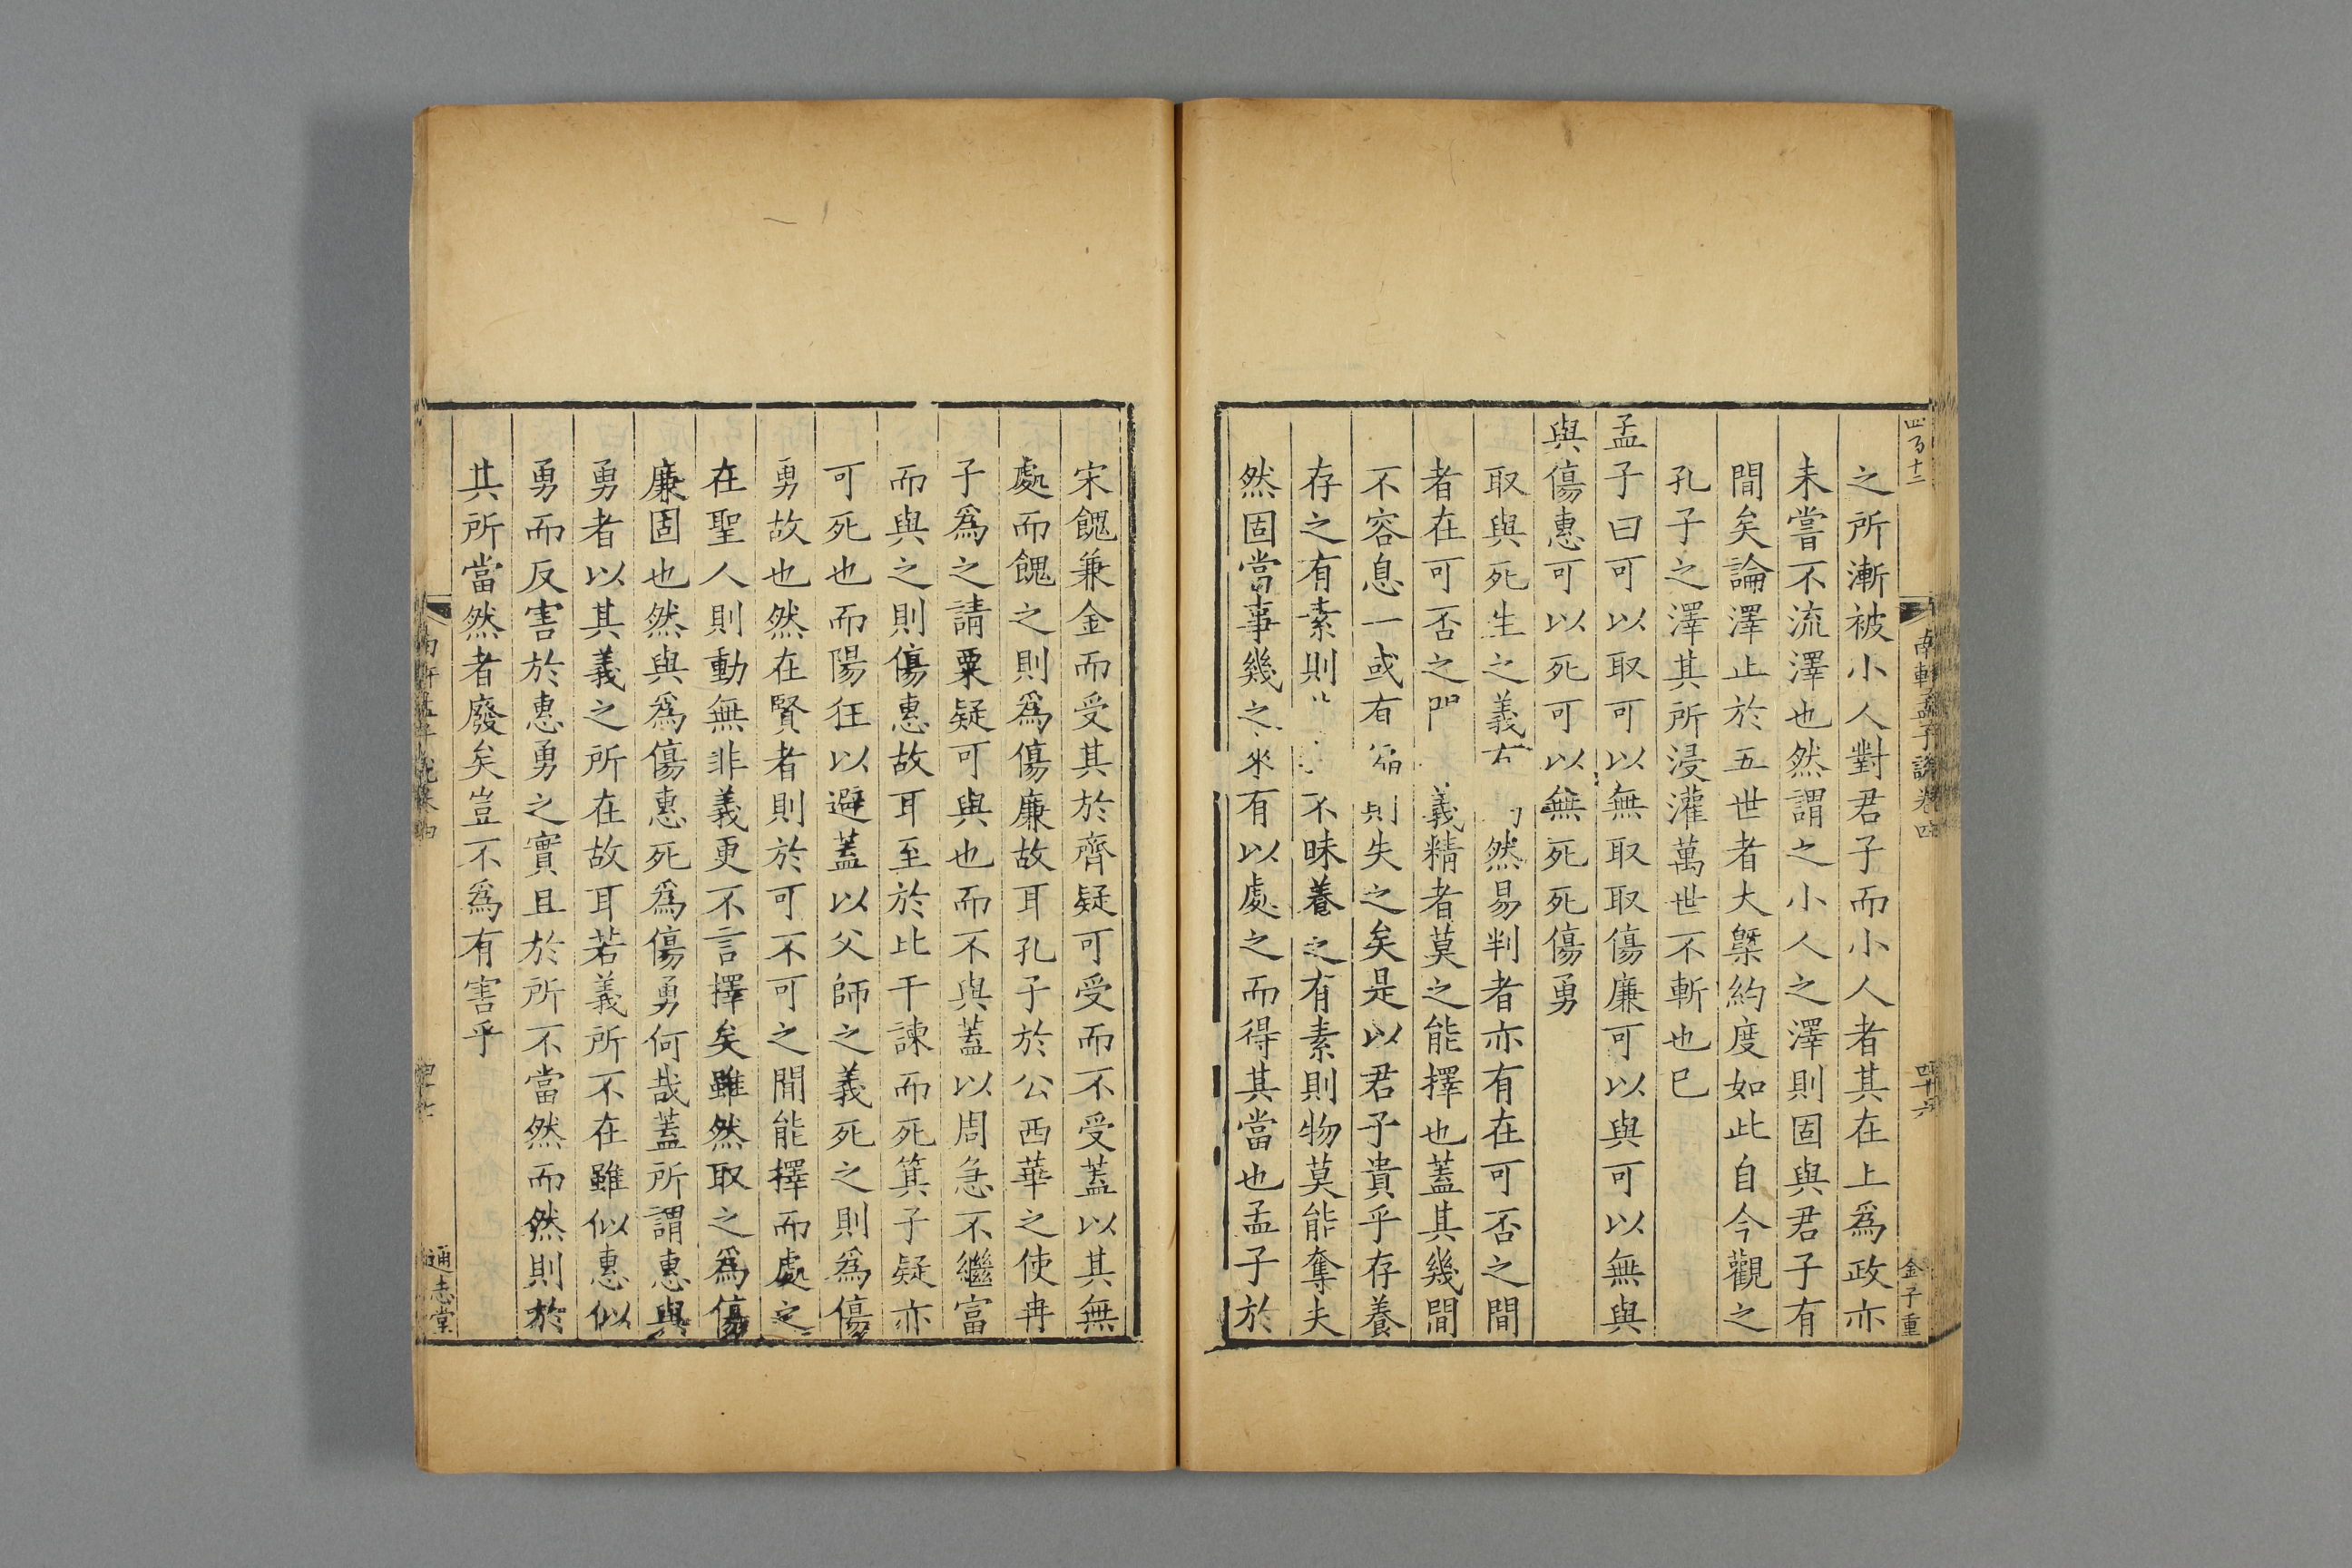 四百十二
南軒孟子說卷四
四十六
金子重
之所漸被小人對君子而小人者其在上爲政亦
未嘗不流澤也然謂之小人之澤則固與君子有
間矣論澤止於五世者大槩約度如此自今觀之
孔子之澤其所浸灌萬世不斬也已
孟子曰可以取可以無取取傷廉可以與可以無與
與傷惠可以死可以無死死傷勇
取與死生之義有 然易判者亦有在可否之間
者在可否之間 義精者莫之能擇也蓋其幾間
不容息一或有偏則失之矣是以君子貴乎存養
存之有素則 不昧養之有素則物莫能奪夫
然固當事幾之來有以處之而得其當也孟子於
宋餽兼金而受其於齊疑可受而不受蓋以其無
處而餽之則爲傷廉故耳孔子於公西華之使冉
子爲之請粟疑可與也而不與蓋以周急不繼富
而與之則傷惠故耳至於比干諫而死箕子疑亦
可死也而陽狂以避蓋以父師之義死之則爲傷
勇故也然在賢者則於可不可之間能擇而處之
在聖人則動無非義更不言擇矣雖然取之爲傷
廉固也然與爲傷惠死爲傷勇何哉蓋所謂惠與
勇者以其義之所在故耳若義所不在雖似惠似
勇而反害於惠勇之實且於所不當然而然則於
其所當然者廢矣豈不爲有害乎
通志堂